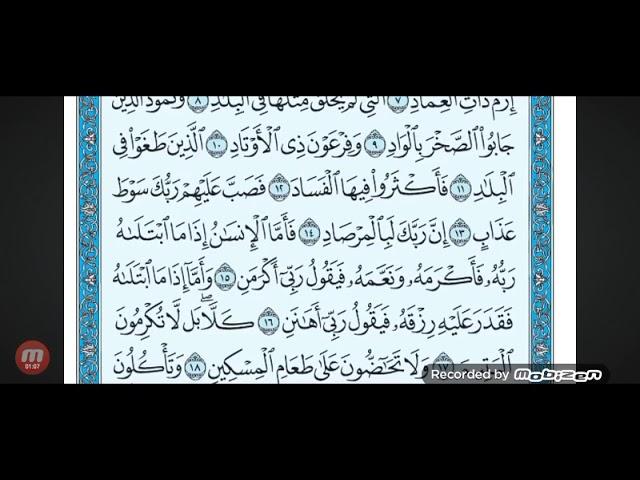 إِرَمَ ذَاتِ ٱلۡعِمَادِ ٧ ٱلَّتِي لَمۡ يُخۡلَقۡ مِثۡلُهَا فِي ٱلۡبِلَٰدِ ٨ وَثَمُودَ ٱلَّذِينَ
جَابُواْ ٱلصَّخۡرَ بِٱلۡوَادِ ٩ وَفِرۡعَوۡنَ ذِي ٱلۡأَوۡتَادِ ١٠ ٱلَّذِينَ طَغَوۡاْ فِي
ٱلۡبِلَٰدِ ١١ فَأَكۡثَرُواْ فِيهَا ٱلۡفَسَادَ ١٢ فَصَبَّ عَلَيۡهِمۡ رَبُّكَ سَوۡطَ
عَذَابٍ ١٣ إِنَّ رَبَّكَ لَبِٱلۡمِرۡصَادِ ١٤ فَأَمَّا ٱلۡإِنسَٰنُ إِذَا مَا ٱبۡتَلَىٰهُ
رَبُّهُۥ فَأَكۡرَمَهُۥ وَنَعَّمَهُۥ فَيَقُولُ رَبِّيٓ أَكۡرَمَنِ ١٥ وَأَمَّآ إِذَا مَا ٱبۡتَلَىٰهُ
فَقَدَرَ عَلَيۡهِ رِزۡقَهُۥ فَيَقُولُ رَبِّيٓ أَهَٰنَنِ ١٦ كَلَّاۖ بَل لَّا تُكۡرِمُونَ
ٱلۡيَتِيمَ ١٧ وَلَا تَحَٰٓضُّونَ عَلَىٰ طَعَامِ ٱلۡمِسۡكِينِ ١٨ وَتَأۡكُلُونَ
01:07
Recorded by Mobizen